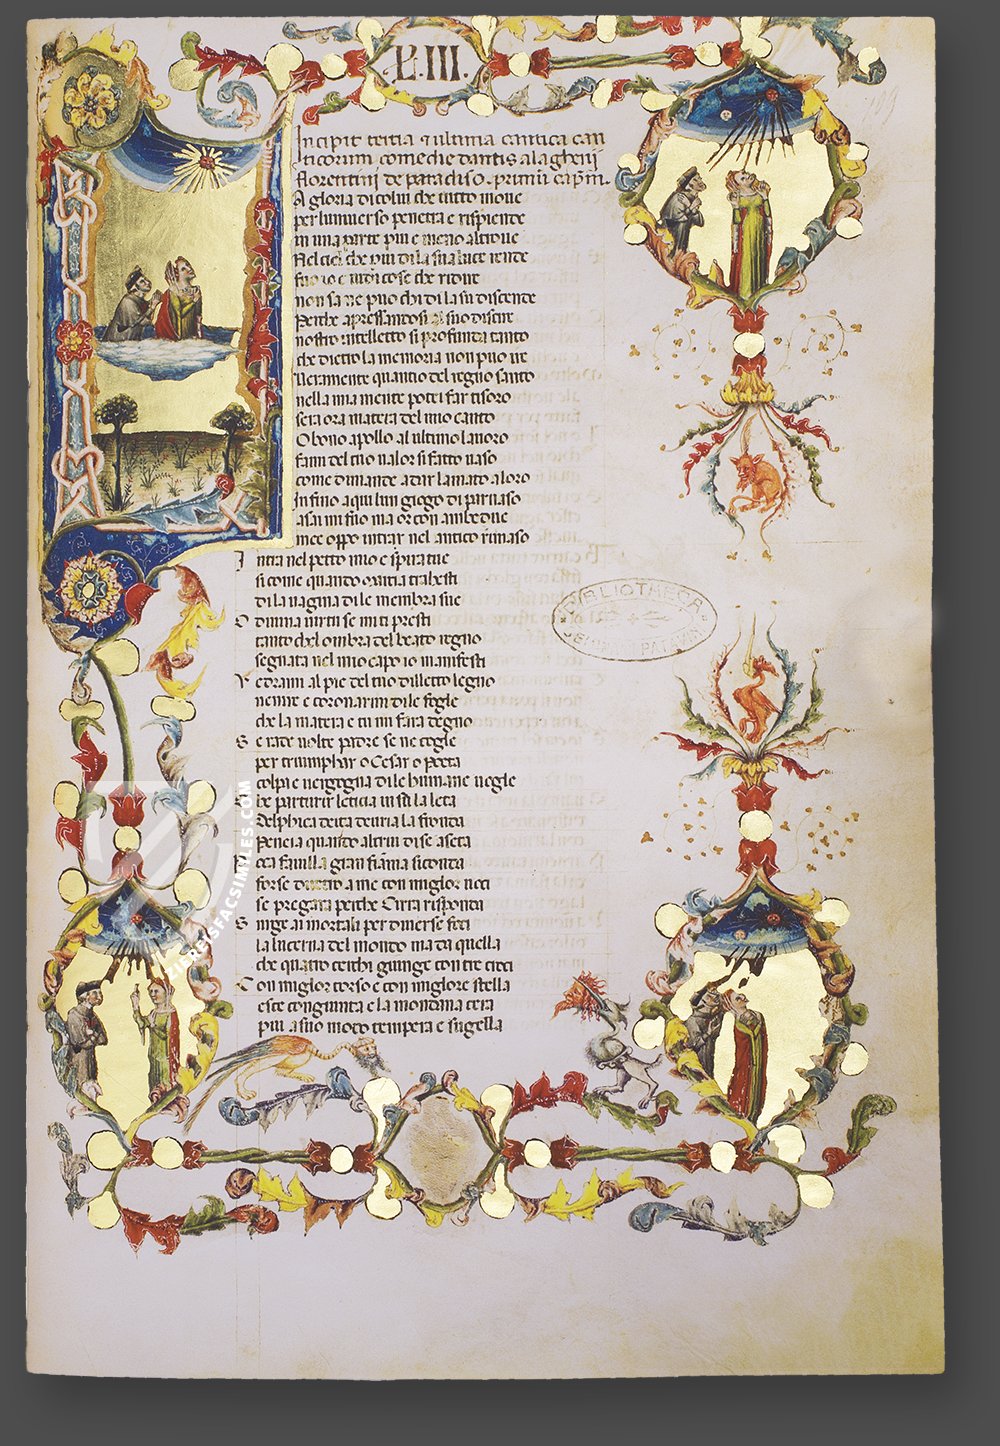 L.III.
Incipit tertia & ultima cantica can
ticorum comedie dantis alagherij
florentini de paradiso. primũ cap̃m.
A gloria di colui che tutto move
per luniuerso penetra e risplente
in una parte piu e meno altroue
Nel ciel che piu di la sua luce rente
fu io e uidi cose che ridire
non sa ne puo chi di la su discente
Perche apressandosi al suo disire
nostro intelletto si profunda tanto
che dietro la memoria non puo ire
Ueramente quanto del regno santo
nella mia mente potei far tisoro
sera ora materia del mio canto
O bono apollo al ultimo lauoro
fami del tuo ualor si fatto uaso
come dimande a dar lamato aloro
Infino a qui lun giogo di parnaso
asai mi fu ma or con ambedue
me oppo intrar nel antico rimaso
Intra nel petto mio e spira tue
si come quando marsia trahesti
di la uagina dile membra sue
O diuina uirtu se mi ti presti
tanto chel ombra del beato regno
segnata nel mio capo io manifesti
Vedrami al pie del tuo diletto legno
uenire e coronarmi dile fogle
che la matera e tu mi fara degno
Se rade uolte padre se ne cogle
per triumphar o Cesar o Poeta
colpa e uergogna dile humane uogle
Che parturir leticia in su la leta
delphica deita deuria la fronda
Peneia quando altrui di se aseta
Poca fauilla gran fiãma siconda
forse dirietro a me con miglor uoci
se pregara perche Cirra risponda
Surge ai mortali per diuerse foci
la lucerna del mondo ma da quella
che quatro cerchi giunge con tre croci
Con miglor corso e con miglore stella
esce congiunta e la mondana cera
piu a suo modo tempera e sugella
BIBLIOTHECA
SEMINARII PATAVINI
ZIEREISFACSIMILES.COM